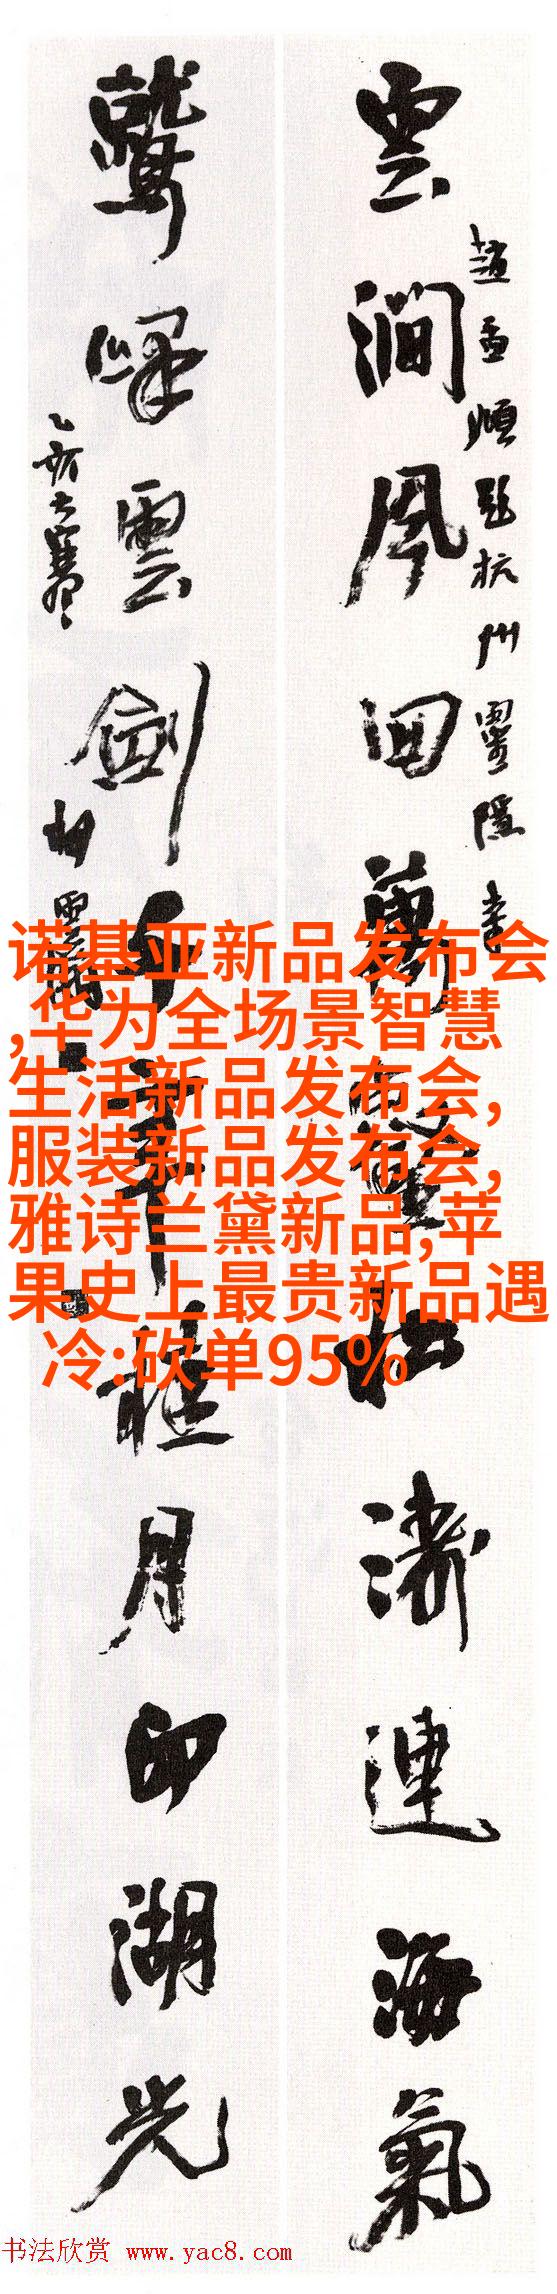 雲澗風回萬壑松濤連海氣
趙孟頫題杭州靈隱寺
鷲峰雲劍千年桂月印湖光
乙亥大寒
诺基亚新品发布会
,华为全场景智慧
生活新品发布会,
服装新品发布会,
雅诗兰黛新品,苹
果史上最贵新品遇
冷:砍单95%
书法欣赏 www.yac8.com